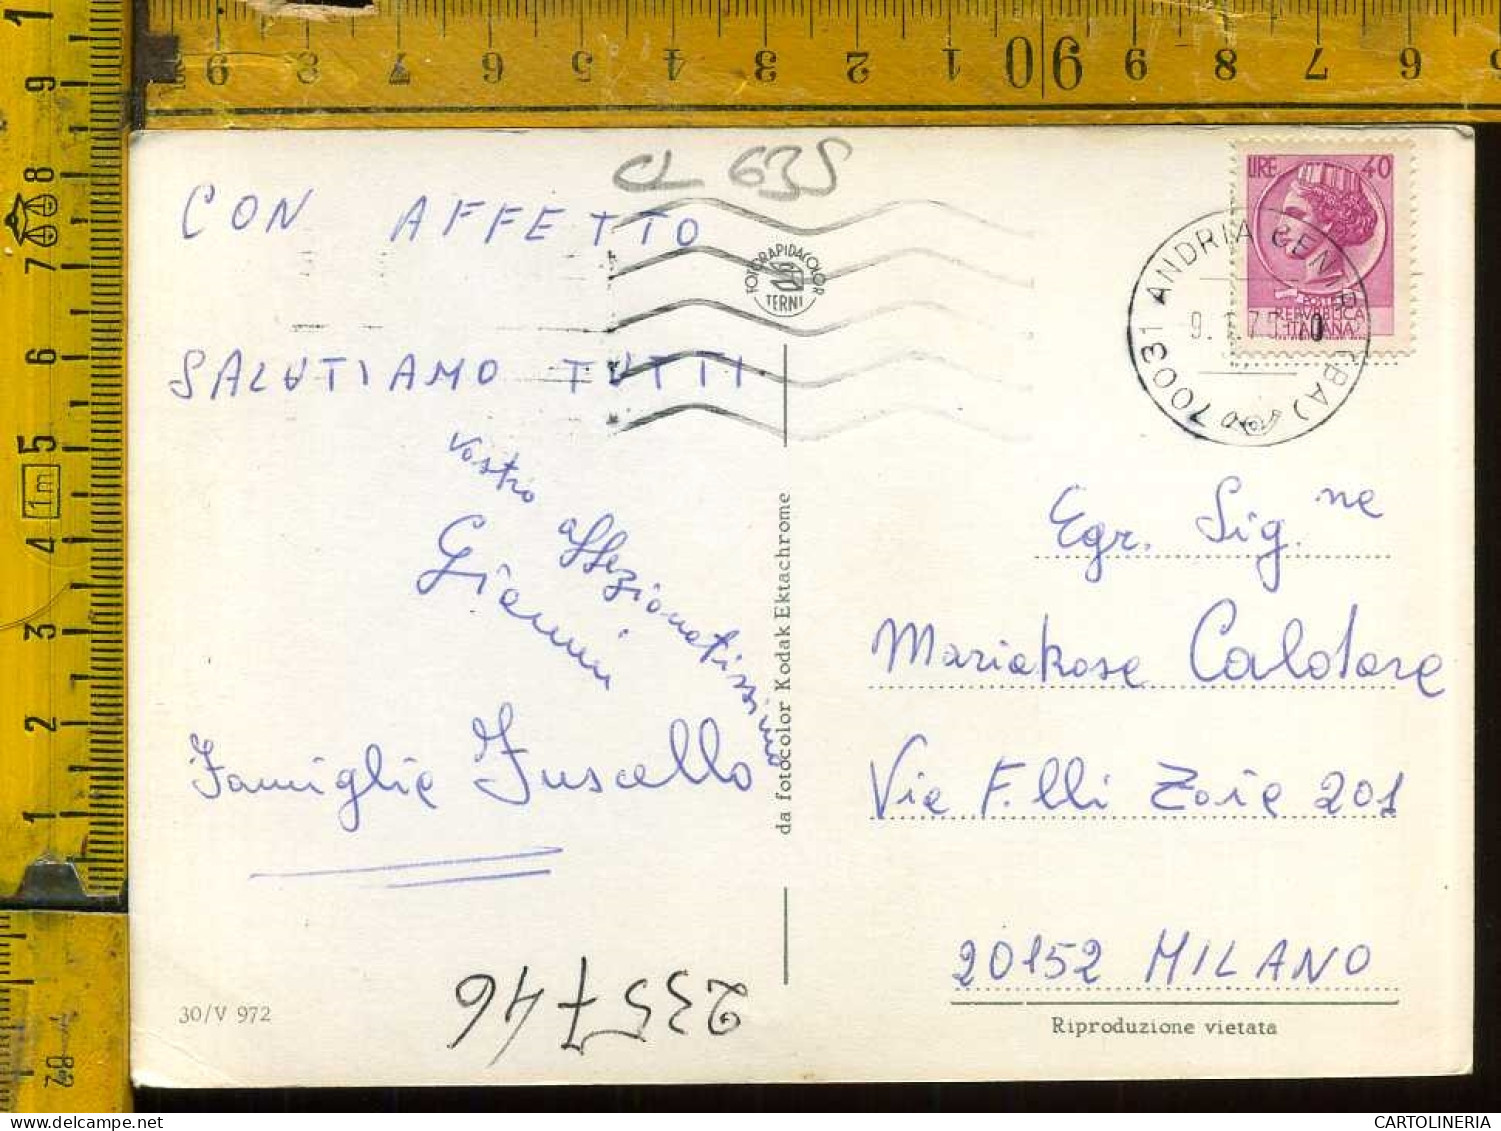 CL 635
CON AFFETTO
SALUTIAMO TUTTI
vostro affezionatissimo
Gianni
Famiglia Fuscello
235746
30/V 972
FOTORAPIDACOLOR
TERNI
da fotocolor Kodak Ektachrome
LIRE 40
POSTE
REPVBBLICA
ITALIANA
70031 ANDRIA (BA)
Egr. Sig.ne
Mariarosa Caldare
Via F.lli Zoia 201
20152 MILANO
Riproduzione vietata
1m
CARTOLINERIA